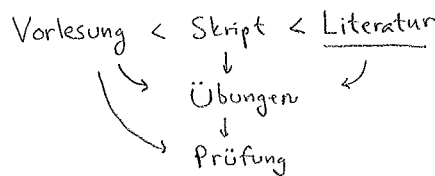 Vorlesung < Skript < Literatur
Übungen
Prüfung